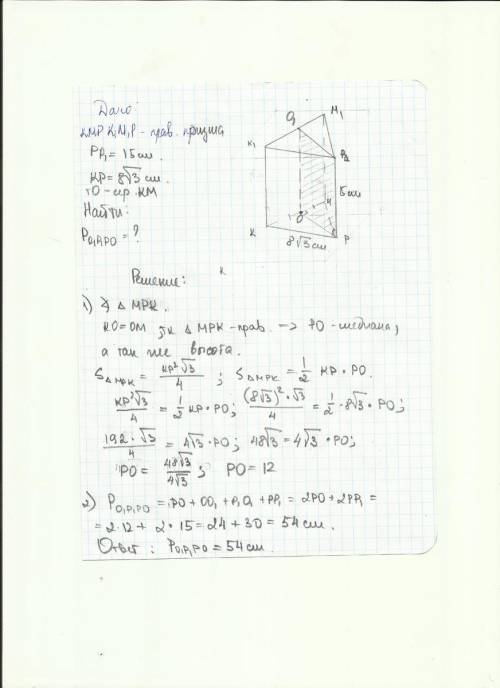 Дано:
KMPK₁M₁P₁ - прав. призма
PP₁ = 15 см.
KP = 8√3 см.
т.О - ср. KM
Найти:
P_O₁P₁PO = ?
K₁
O₁
M₁
P₁
15 см
K
O
M
P
8√3 см
Решение:
1) △ MPK.
KO = OM, т.к △ MPK - прав. => PO - медиана,
а так же высота.
S△MPK = KP²√3/4 ; S△MPK = 1/2 KP · PO.
KP²√3/4 = 1/2 KP · PO; (8√3)² · √3/4 = 1/2 · 8√3 · PO;
192 · √3/4 = 4√3 · PO; 48√3 = 4√3 · PO;
PO = 48√3/4√3 ; PO = 12
2) P_O₁P₁PO = PO + OO₁ + P₁O₁ + PP₁ = 2PO + 2PP₁ =
= 2 · 12 + 2 · 15 = 24 + 30 = 54 см.
Ответ: P_O₁P₁PO = 54 см.